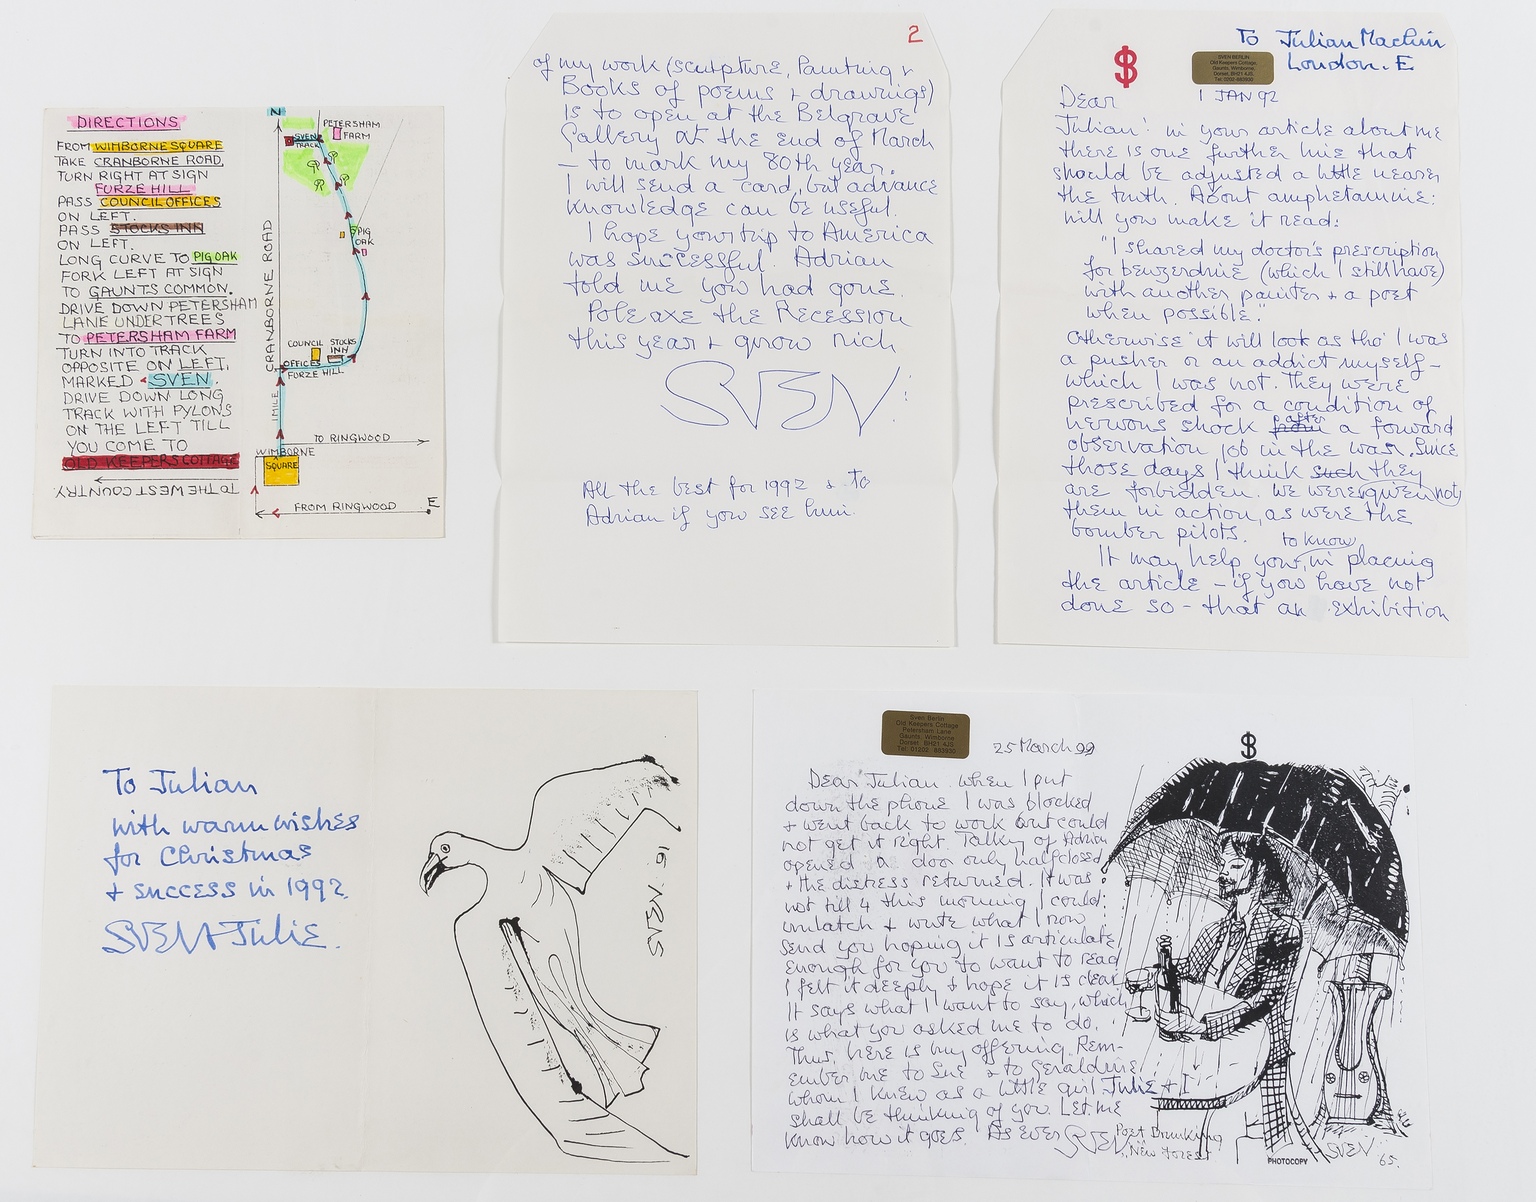 DIRECTIONS
FROM WIMBORNE SQUARE
TAKE CRANBORNE ROAD,
TURN RIGHT AT SIGN
FURZE HILL
PASS COUNCIL OFFICES
ON LEFT.
PASS STOCKS INN
ON LEFT.
LONG CURVE TO PIG OAK
FORK LEFT AT SIGN
TO GAUNTS COMMON.
DRIVE DOWN PETERSHAM
LANE UNDER TREES
TO PETERSHAM FARM
TURN INTO TRACK
OPPOSITE ON LEFT,
MARKED SVEN.
DRIVE DOWN LONG
TRACK WITH PYLONS
ON THE LEFT TILL
YOU COME TO
OLD KEEPERS COTTAGE
TO THE WEST COUNTRY.
N
PETERSHAM
FARM
SVEN
TRACK
PIG
OAK
CRANBORNE ROAD
COUNCIL
OFFICES
STOCKS
INN
FURZE HILL
1 MILE
TO RINGWOOD
WIMBORNE
SQUARE
FROM RINGWOOD
E
2
of my work (sculpture, Painting +
Books of poems + drawings)
is to open at the Belgrave
Gallery at the end of March
– to mark my 80th year.
I will send a card, but advance
knowledge can be useful.
I hope your trip to America
was successful. Adrian
told me you had gone.
Poleaxe the Recession
this year + grow rich
SVEN
All the best for 1992 & to
Adrian if you see him.
$
To Julian Machin
London. E
SVEN BERLIN
Old Keepers Cottage,
Gaunts, Wimborne,
Dorset, BH21 4JS.
Tel: 0202-883930
1 JAN 92
Dear
Julian! in your article about me
there is one further line that
should be adjusted a little nearer
the truth. About amphetamine:
will you make it read:
"I shared my doctor's prescription
for benzendrine (which I still have)
with another painter + a poet
when possible."
Otherwise it will look as tho' I was
a pusher or an addict myself –
which I was not. They were
prescribed for a condition of
nervous shock from after a forward
observation job in the war. Since
those days I think such they
are forbidden. We were given not
them in action, as were the
bomber pilots.
It may help you, to know in placing
the article – if you have not
done so – that an exhibition
To Julian
with warm wishes
for Christmas
+ success in 1992.
SVEN + Julie.
Sven Berlin
Old Keepers Cottage
Petersham Lane
Gaunts, Wimborne
Dorset BH21 4JS
Tel: 01202 883930
25 March 99
$
Dear Julian. When I put
down the phone I was blocked
+ went back to work but could
not get it right. Talking of Adrian
opened a door only half closed
+ the distress returned. It was
not till 4 this morning I could
unlatch + write what I now
send you hoping it is articulate
enough for you to want to read
I felt it deeply + hope it is clear
It says what I want to say, which
is what you asked me to do.
Thus, here is my offering. Rem-
ember me to Sue & to Geraldine
whom I knew as a little girl. Julie + I
shall be thinking of you. Let me
know how it goes. As ever SVEN
Poet Drinking
New Forest
PHOTOCOPY
SVEN '65.